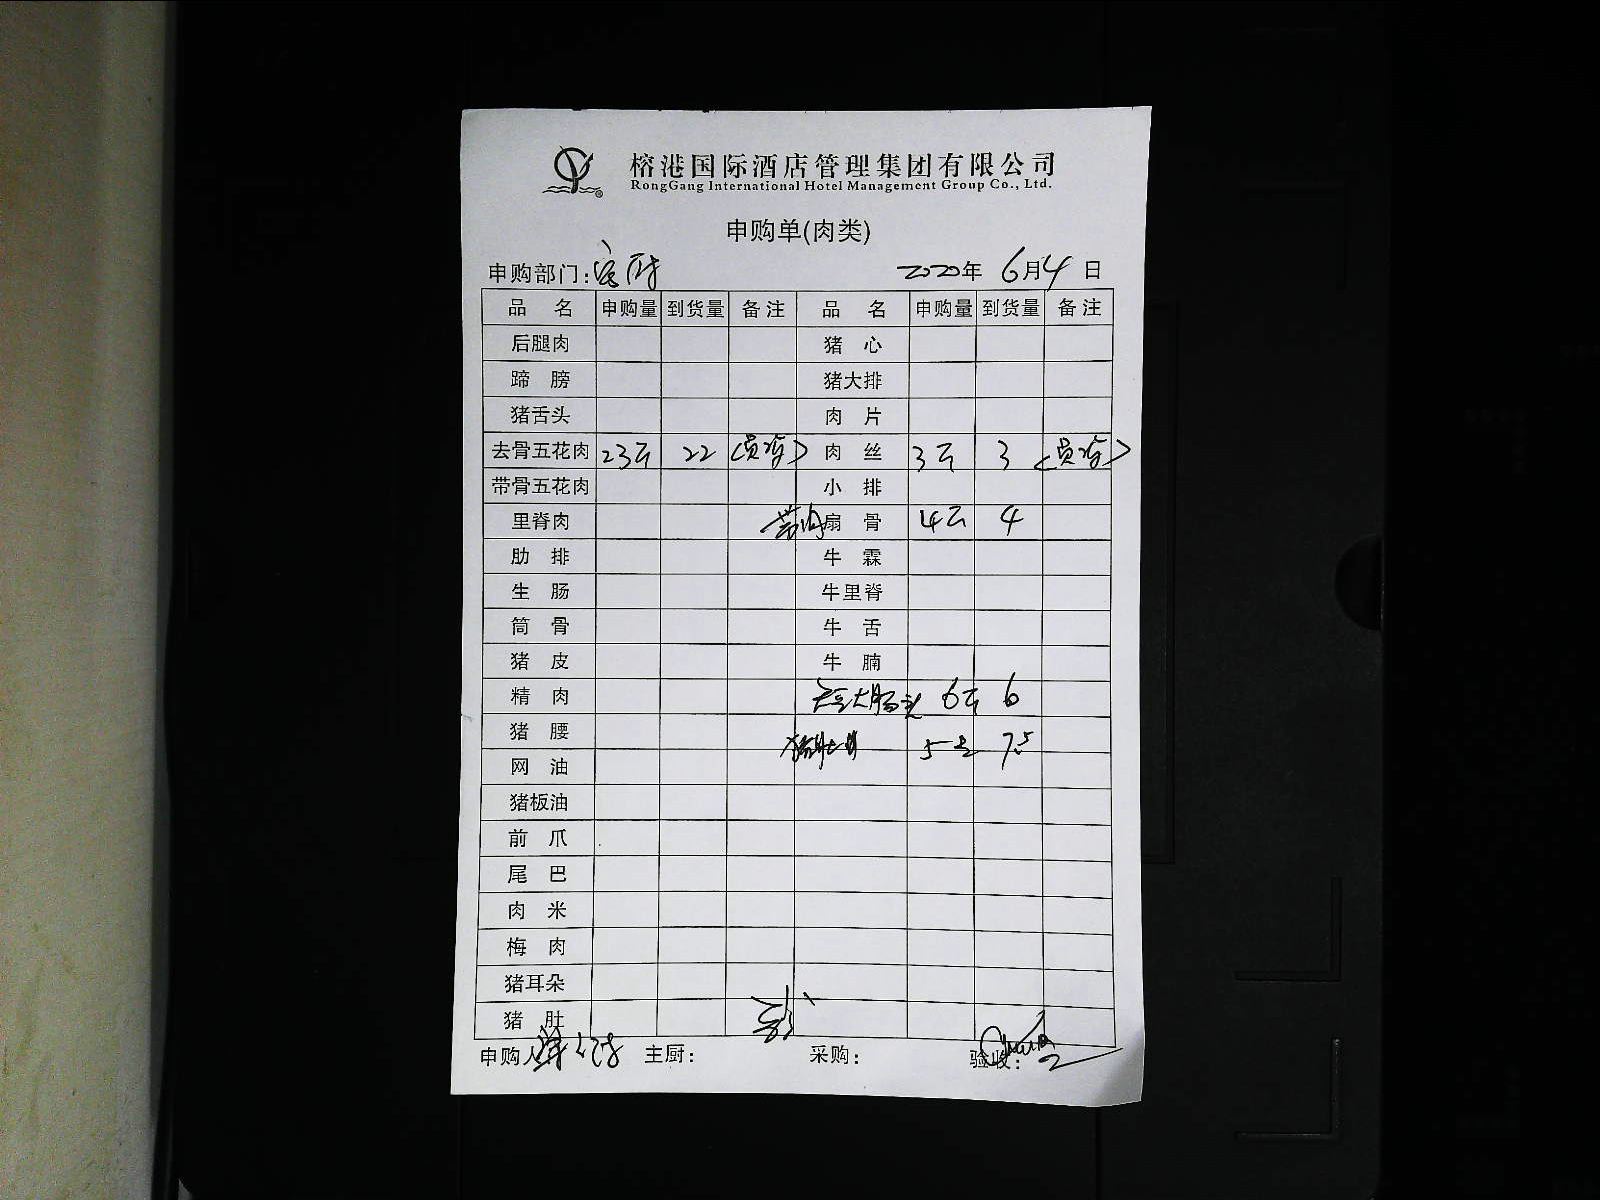 榕港国际酒店管理集团有限公司
RongGang International Hotel Management Group Co., Ltd.
申购单(肉类)
申购部门: 2020年 6月4日
品 名 申购量 到货量 备注 品 名 申购量 到货量 备注
后腿肉 猪 心
蹄 膀 猪大排
猪舌头 肉 片
去骨五花肉 23斤 22 <员餐> 肉 丝 3斤 3 <员餐>
带骨五花肉 小 排
里脊肉 带肉扇 骨 4斤 4
肋 排 牛 霖
生 肠 牛里脊
筒 骨 牛 舌
猪 皮 牛 腩
精 肉 大肠头 6斤 6
猪 腰 5 7.5
网 油
猪板油
前 爪
尾 巴
肉 米
梅 肉
猪耳朵
猪 肚
申购人 主厨: 采购: 验收: